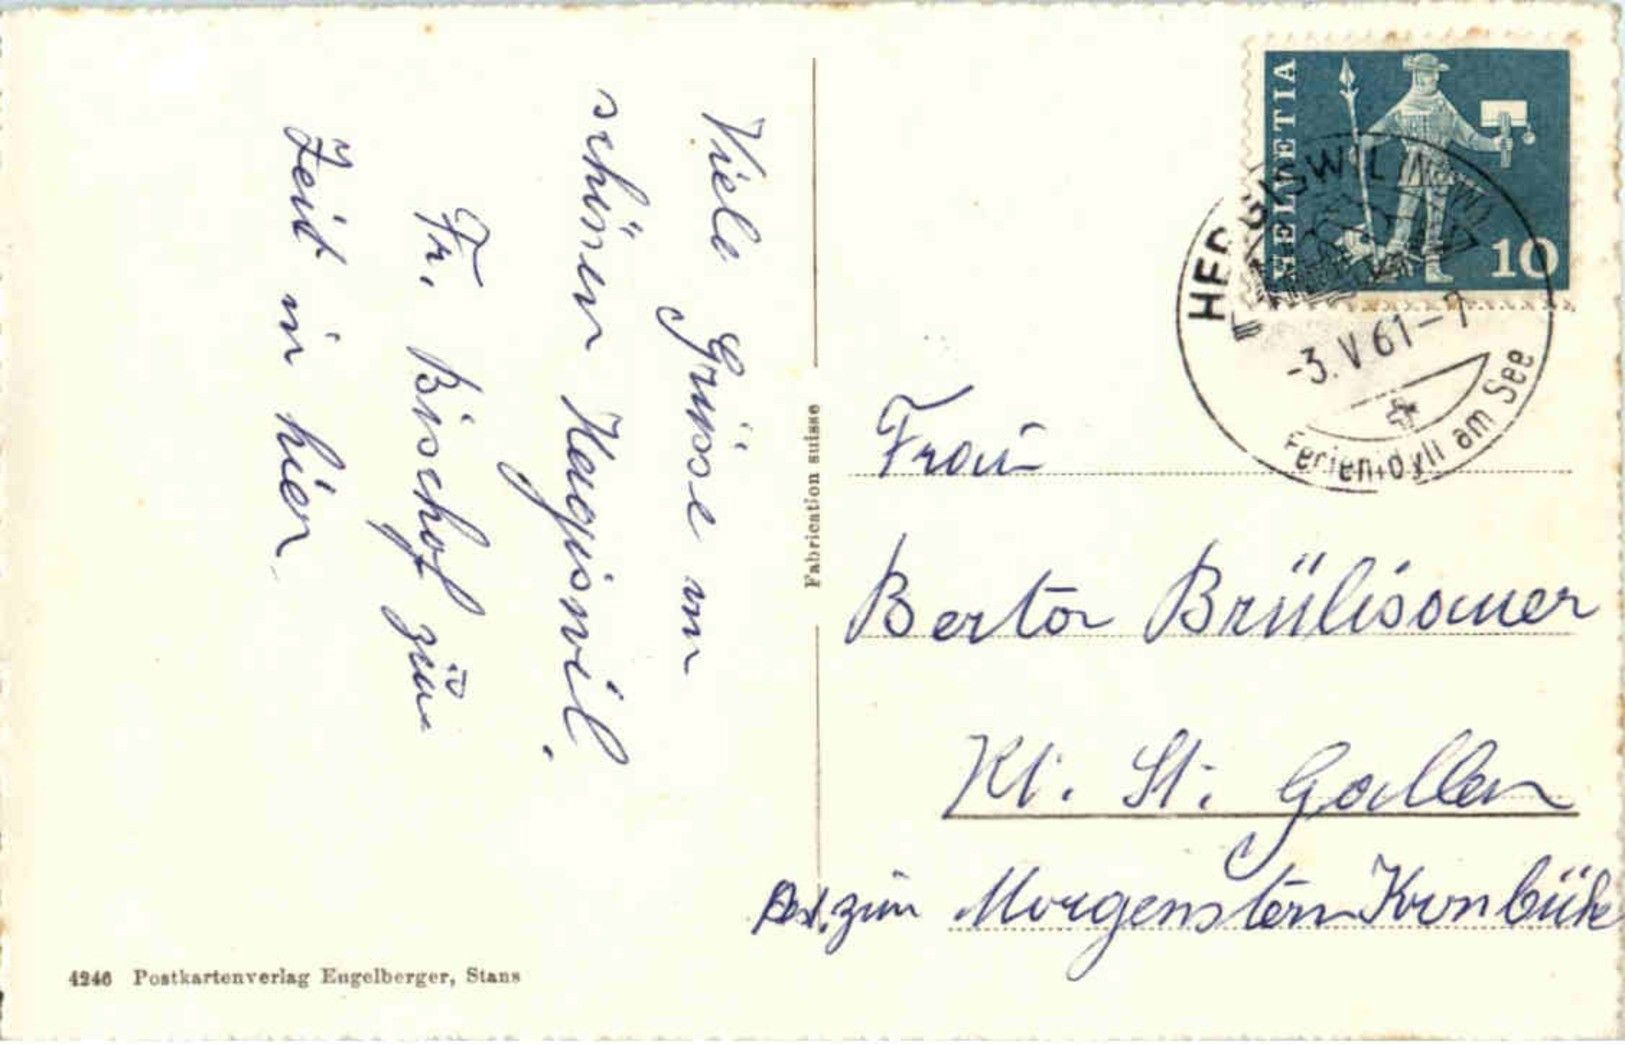 Viele Grüsse vom
schönen Hergiswil.
Fr. Bischof zur
Zeit in hier
4246 Postkartenverlag Engelberger, Stans
Fabrication suisse
HELVETIA
10
HERGISWIL (NIDW)
-3.V.61-7
Ferienidyll am See
Frau
Berta Brülisauer
Kt. St. Gallen
Rest. zum Morgenstern Kronbühl